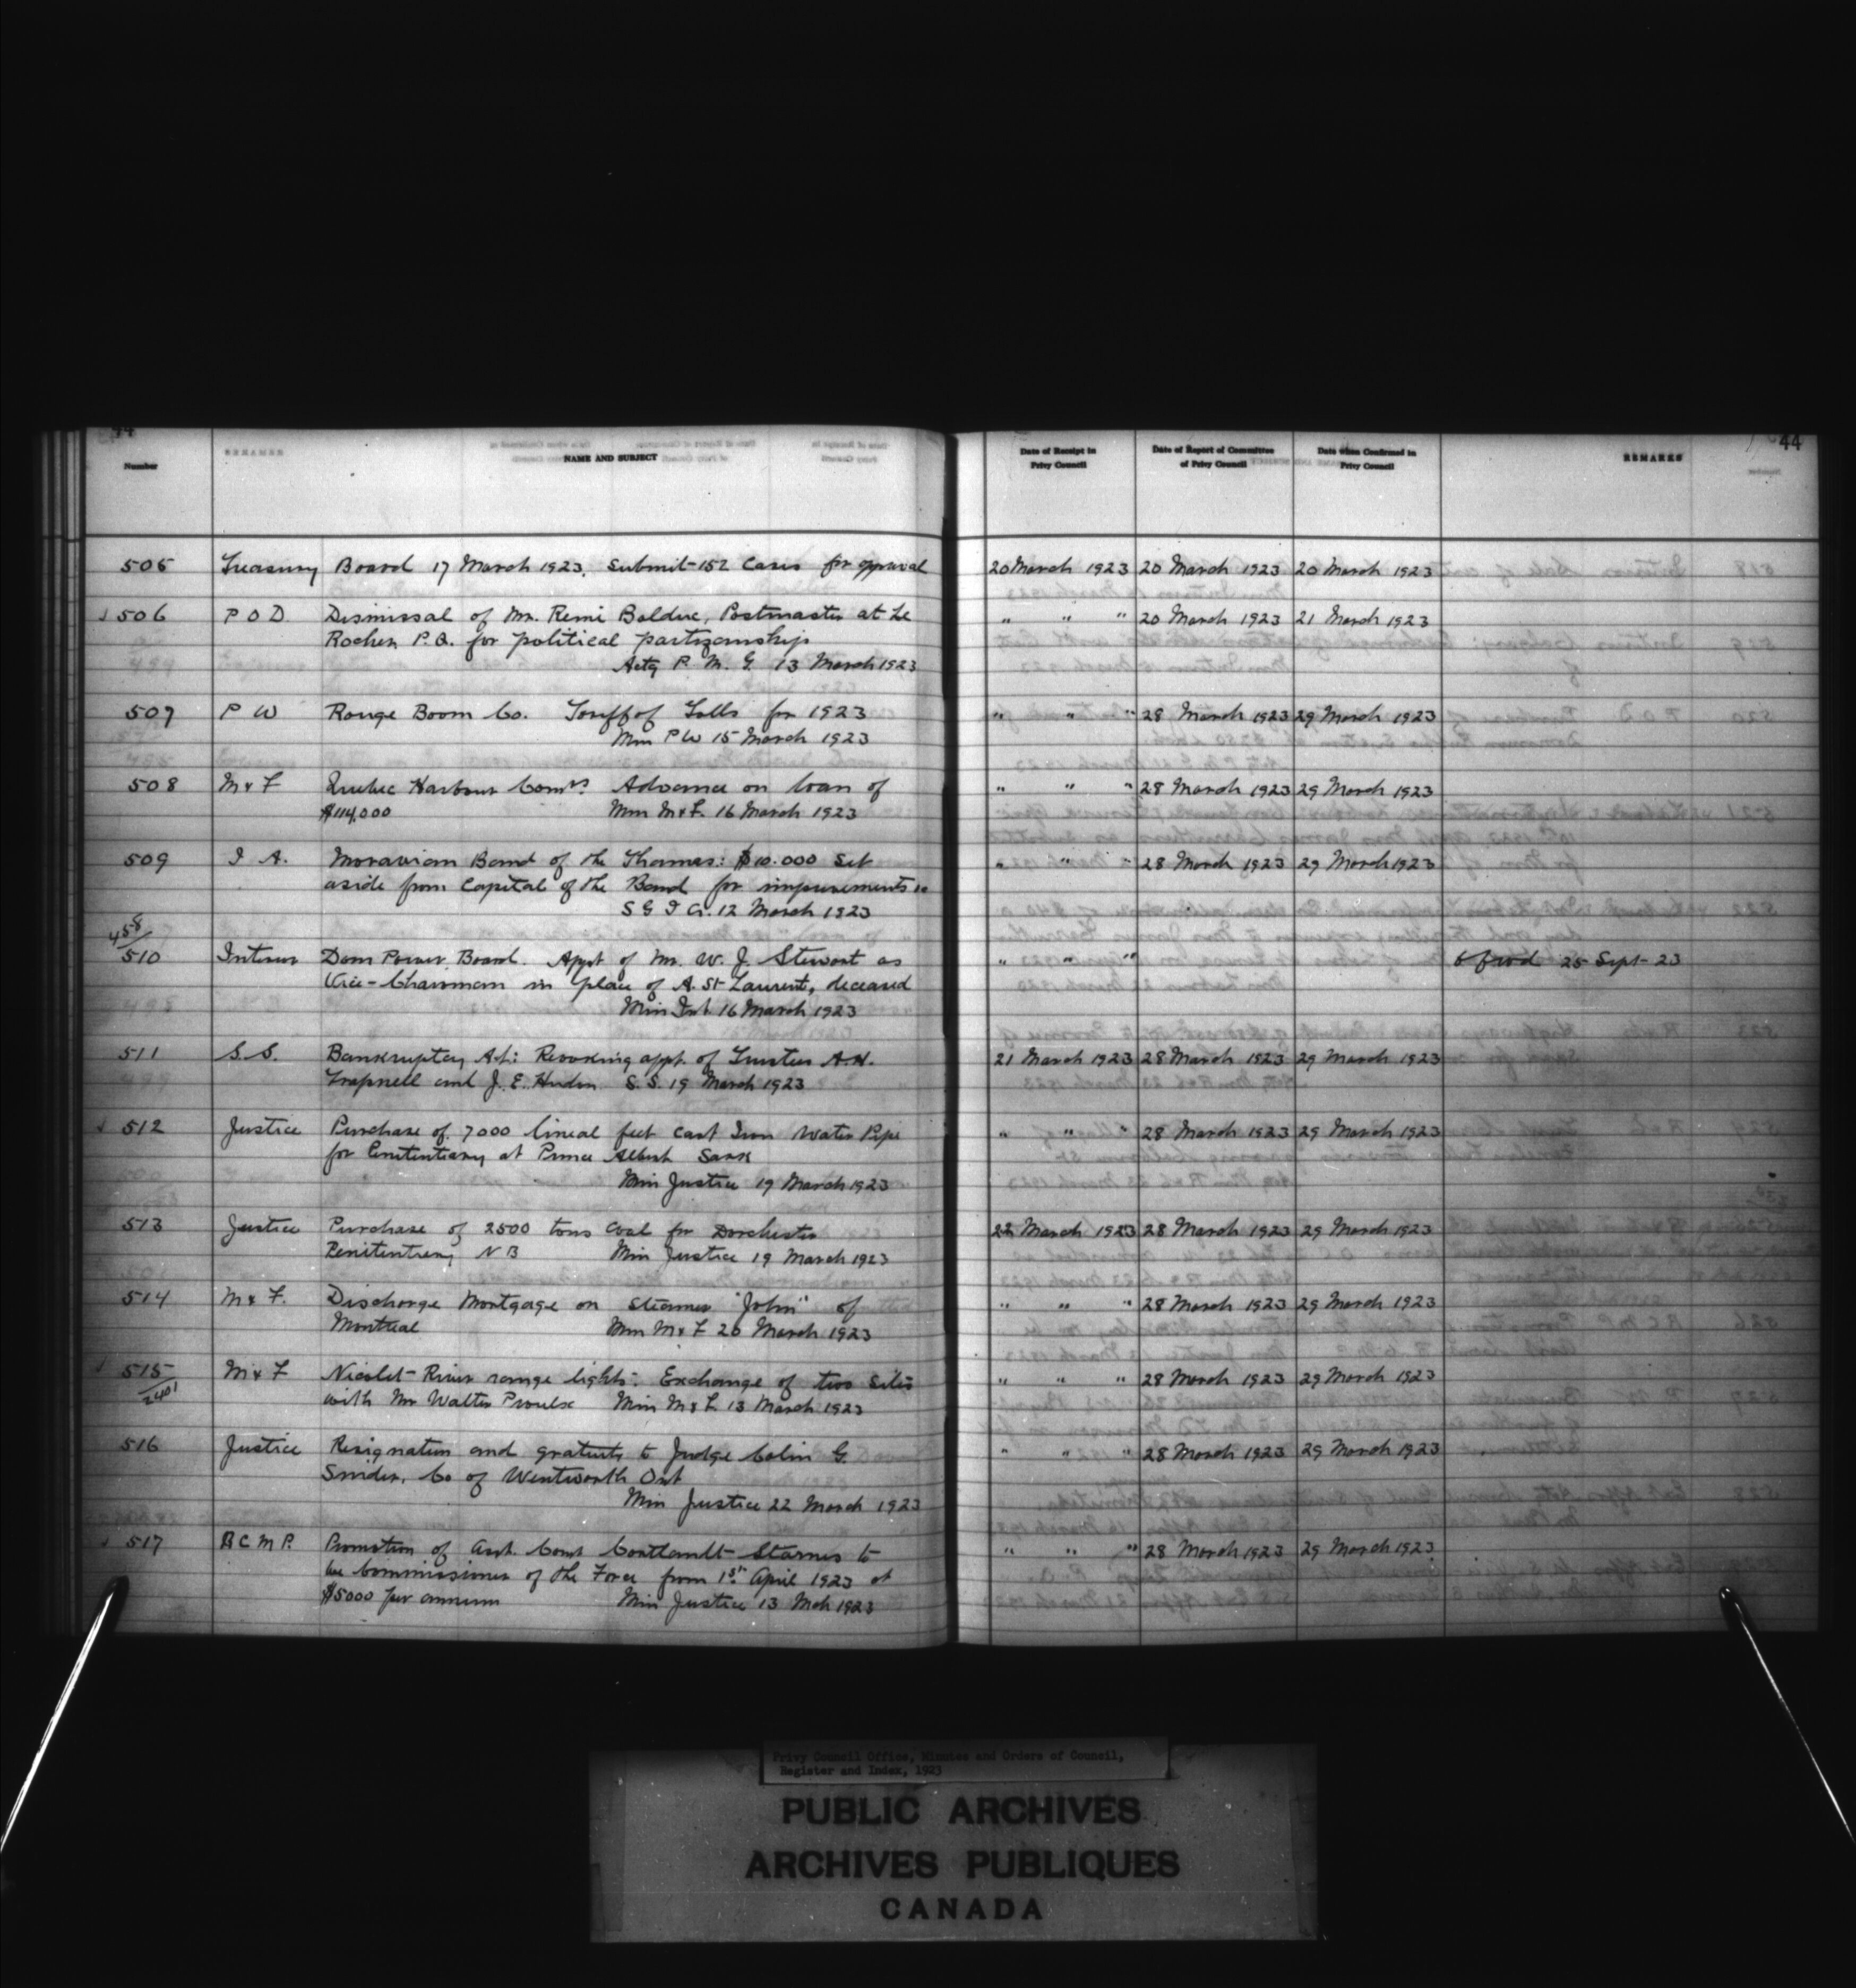 44
44
Number
NAME AND SUBJECT
Date of Receipt in Privy Council
Date of Report of Committee of Privy Council
Date when Confirmed in Privy Council
REMARKS
505 Treasury Board 17 March 1923. Submit 152 Cases for approval 20 March 1923 20 March 1923 20 March 1923
506 P O D Dismissal of Mr. Remi Bolduc, Postmaster at Le " " " 20 March 1923 21 March 1923
Rocher P.Q. for political partizanship
Actg P. M. G. 13 March 1923
507 P W Rouge Boom Co. Tariff of Tolls for 1923 " " " 28 March 1923 29 March 1923
Min P W 15 March 1923
508 M & F Quebec Harbour Comrs. Advance on loan of " " " 28 March 1923 29 March 1923
$114,000 Min M & F. 16 March 1923
509 I A. Moravian Band of the Thames: $10.000 set " " " 28 March 1923 29 March 1923
aside from Capital of the Band for improvements
S G I A. 12 March 1923
458
510 Interior Dom Power Board. Appt of Mr. W. J. Stewart as " " " 25 Sept 23
Vice-Chairman in place of A. St Laurent, deceased
Min Int 16 March 1923
511 S.S. Bankruptcy Act: Revoking appt. of Trustees A.H. 21 March 1923 28 March 1923 29 March 1923
Trapnell and J. E. Hudon S. S. 19 March 1923
512 Justice Purchase of 7000 lineal feet Cast Iron Water Pipe " " " 28 March 1923 29 March 1923
for Penitentiary at Prince Albert Sask
Min Justice 19 March 1923
513 Justice Purchase of 2500 tons Coal for Dorchester 22 March 1923 28 March 1923 29 March 1923
Penitentiary N B Min Justice 19 March 1923
514 M & F. Discharge Mortgage on Steamer "John" of " " " 28 March 1923 29 March 1923
Montreal Min M & F 20 March 1923
515 M & F Nicolet River range lights: Exchange of two Sites " " " 28 March 1923 29 March 1923
2401 with Mr Walter Proulx Min M & F. 13 March 1923
516 Justice Resignation and gratuity to Judge Colin G. " " " 28 March 1923 29 March 1923
Snider, Co of Wentworth Ont
Min Justice 22 March 1923
517 R C M P. Promotion of Asst. Comr Cortlandt Starnes to " " " 28 March 1923 29 March 1923
be Commissioner of the Force from 1st April 1923 at
$5000 per annum Min Justice 13 Mch 1923
Privy Council Office, Minutes and Orders of Council,
Register and Index, 1923
PUBLIC ARCHIVES
ARCHIVES PUBLIQUES
CANADA